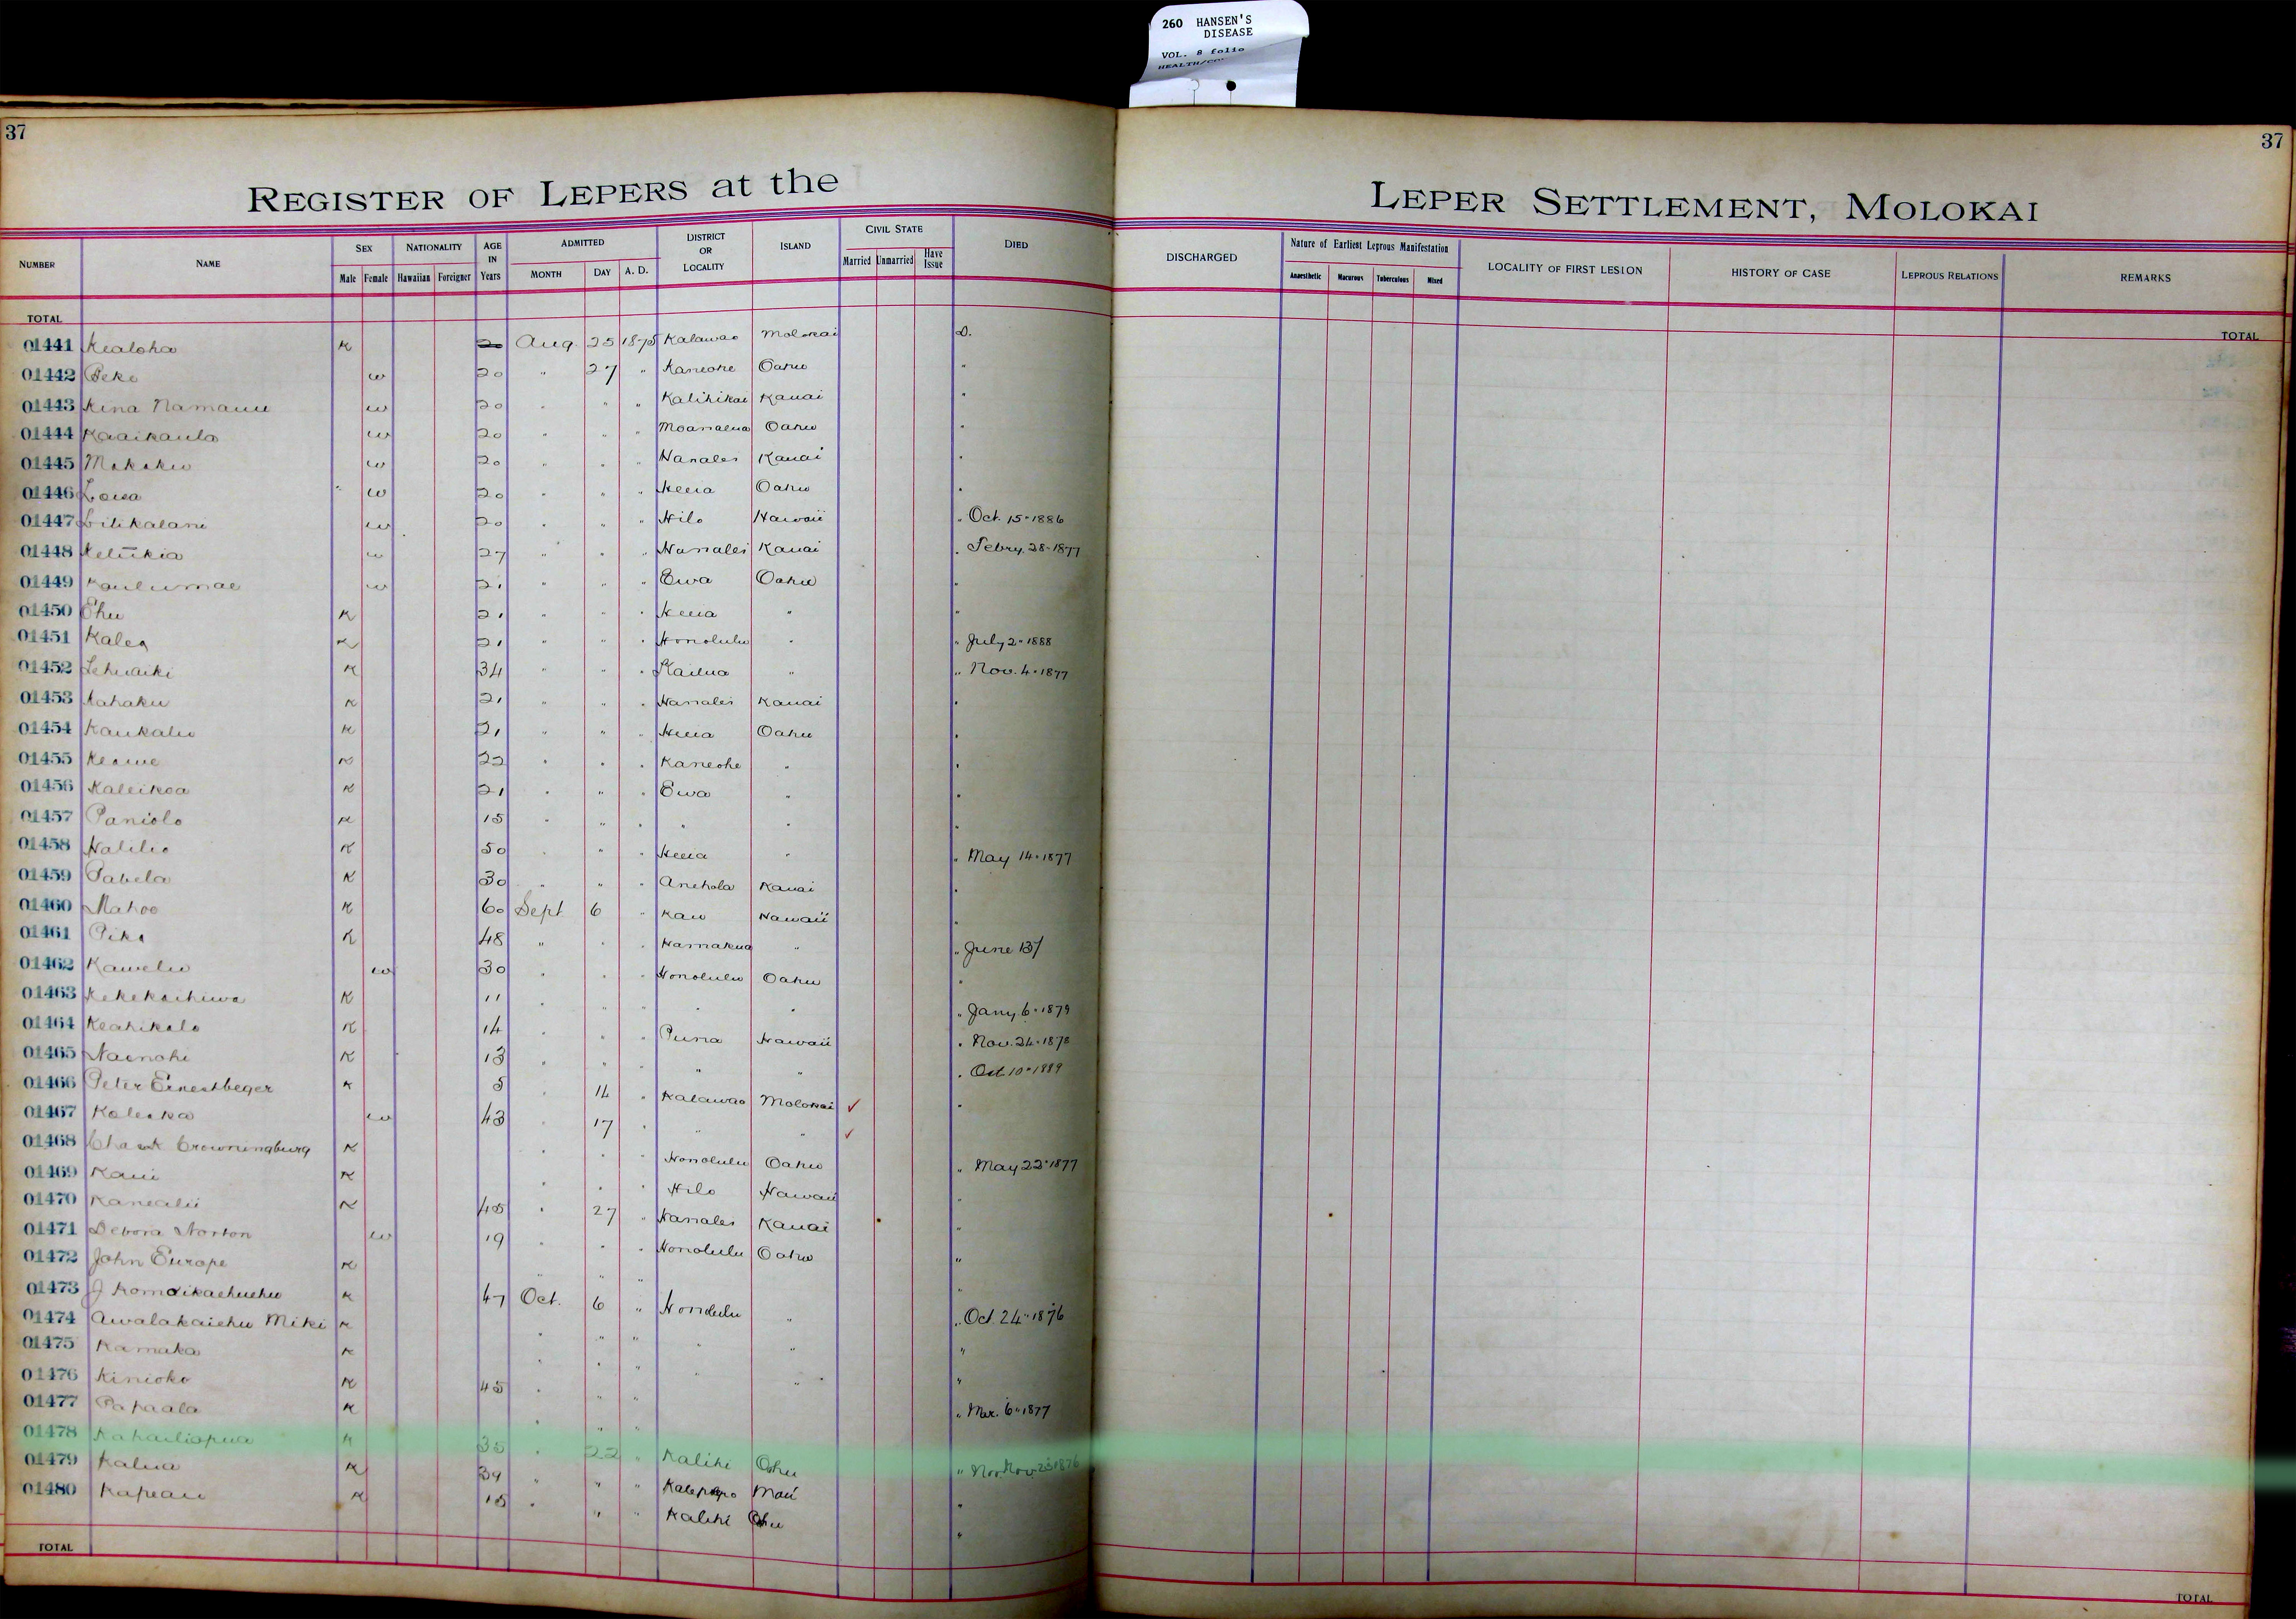 260 HANSEN'S
DISEASE
VOL. 8 folio
37
37
REGISTER OF LEPERS at the LEPER SETTLEMENT, MOLOKAI
NUMBER NAME SEX Male Female NATIONALITY Hawaiian Foreigner AGE IN Years ADMITTED MONTH DAY A. D. DISTRICT OR LOCALITY ISLAND CIVIL STATE Married Unmarried Have Issue DIED DISCHARGED Nature of Earliest Leprous Manifestation Anaesthetic Macurous Tuberculous Mixed LOCALITY OF FIRST LESION HISTORY OF CASE LEPROUS RELATIONS REMARKS
TOTAL TOTAL
01441 Kealoha K 20 Aug. 25 1875 Kalawao Molokai D.
01442 Peke w 20 " 27 " Kaneohe Oahu "
01443 Kina Namauu w 20 " " " Kalihikai Kauai "
01444 Kaaikaula w 20 " " " Moanalua Oahu "
01445 Makaku w 20 " " " Hanalei Kauai "
01446 Loisa w 20 " " " Heeia Oahu "
01447 Lilikalani w 20 " " " Hilo Hawaii " Oct. 15-1886
01448 Keliikia w 27 " " " Hanalei Kauai " Febry. 28-1877
01449 Kaulumae w 21 " " " Ewa Oahu "
01450 Ehu K 21 " " " Heeia " "
01451 Kalea K 21 " " " Honolulu " " July 2-1888
01452 Lehuaiki K 34 " " " Kailua " " Nov. 4-1877
01453 Kahaku K 21 " " " Hanalei Kauai "
01454 Kaukaliu K 21 " " " Heeia Oahu "
01455 Keawe K 22 " " " Kaneohe " "
01456 Kaleikoa K 21 " " " Ewa " "
01457 Paniolo K 15 " " " " " "
01458 Halilio K 50 " " " Heeia " " May 14-1877
01459 Pabela K 30 " " " Anehola Kauai "
01460 Mahoe K 60 Sept 6 " Kau Hawaii "
01461 Pika K 48 " " " Hamakua " " June 137
01462 Kawelu w 30 " " " Honolulu Oahu "
01463 Kekekachiwa K 11 " " " " " " Jany. 6-1879
01464 Keahikolo K 14 " " " Puna Hawaii " Nov. 24-1878
01465 Nainohi K 13 " " " " " " Oct 10-1889
01466 Peter Ernestbeger K 5 " 14 " Kalawao Molokai ✓ "
01467 Kaleika w 43 " 17 " " " ✓
01468 Crowningburg K " " " Honolulu Oahu " May 22-1877
01469 Kaui K " " " Hilo Hawaii "
01470 Kanealii K 45 " 27 " Hanalei Kauai "
01471 Debora Norton w 19 " " " Honolulu Oahu "
01472 John Europe K " " " "
01473 J Komoikaehuehu K 47 Oct. 6 " Honolulu " " Oct. 24-1876
01474 Awalakaiehu Miki K " " " " " "
01475 Kamaka K " " " " " "
01476 Kinioko K 45 " " " " Mar. 6-1877
01477 Papaala K " " "
01478 Kahailiopua K 35 " 22 " Kalihi Oahu " Nov. 23 1876
01479 Kalua K 39 " " " Kalepolepo Maui "
01480 Kapeau K 15 " " " Kalihi Oahu "
TOTAL TOTAL